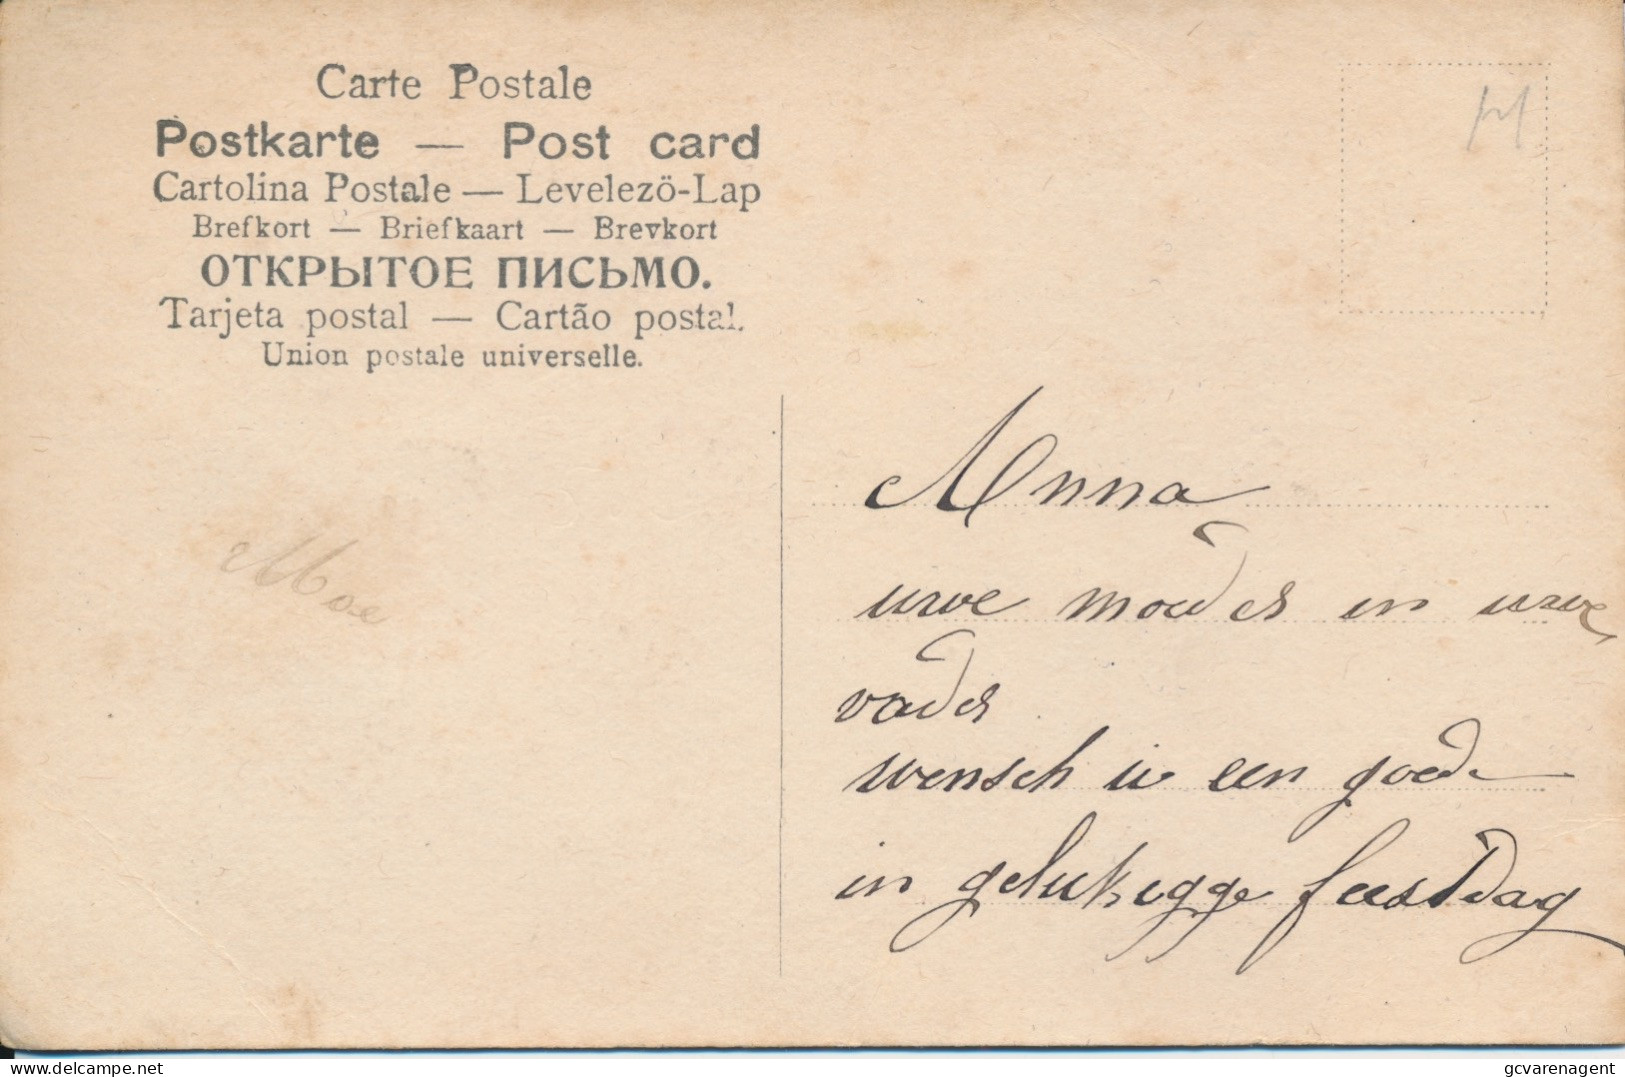 Carte Postale
Postkarte — Post card
Cartolina Postale — Levelezö-Lap
Brefkort — Briefkaart — Brevkort
ОТКРЫТОЕ ПИСЬМО.
Tarjeta postal — Cartão postal.
Union postale universelle.
Anna
uwe moeder en uwe
vader
wensch u een goed
en gelukigge feestdag
delcampe.net
gcvarenagent